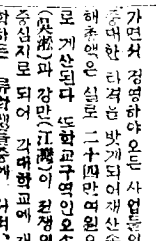 가면서 경영하야오든 사업들의
중대한 타격을 밧게되어재산손
해총액은 실로 二十四만여원으
로 게산된다 또학교구역인오소
(吳淞)과 강만(江灣)이 전쟁의
중심지로 되어 각대학교에 재
학하든 류학생들중에